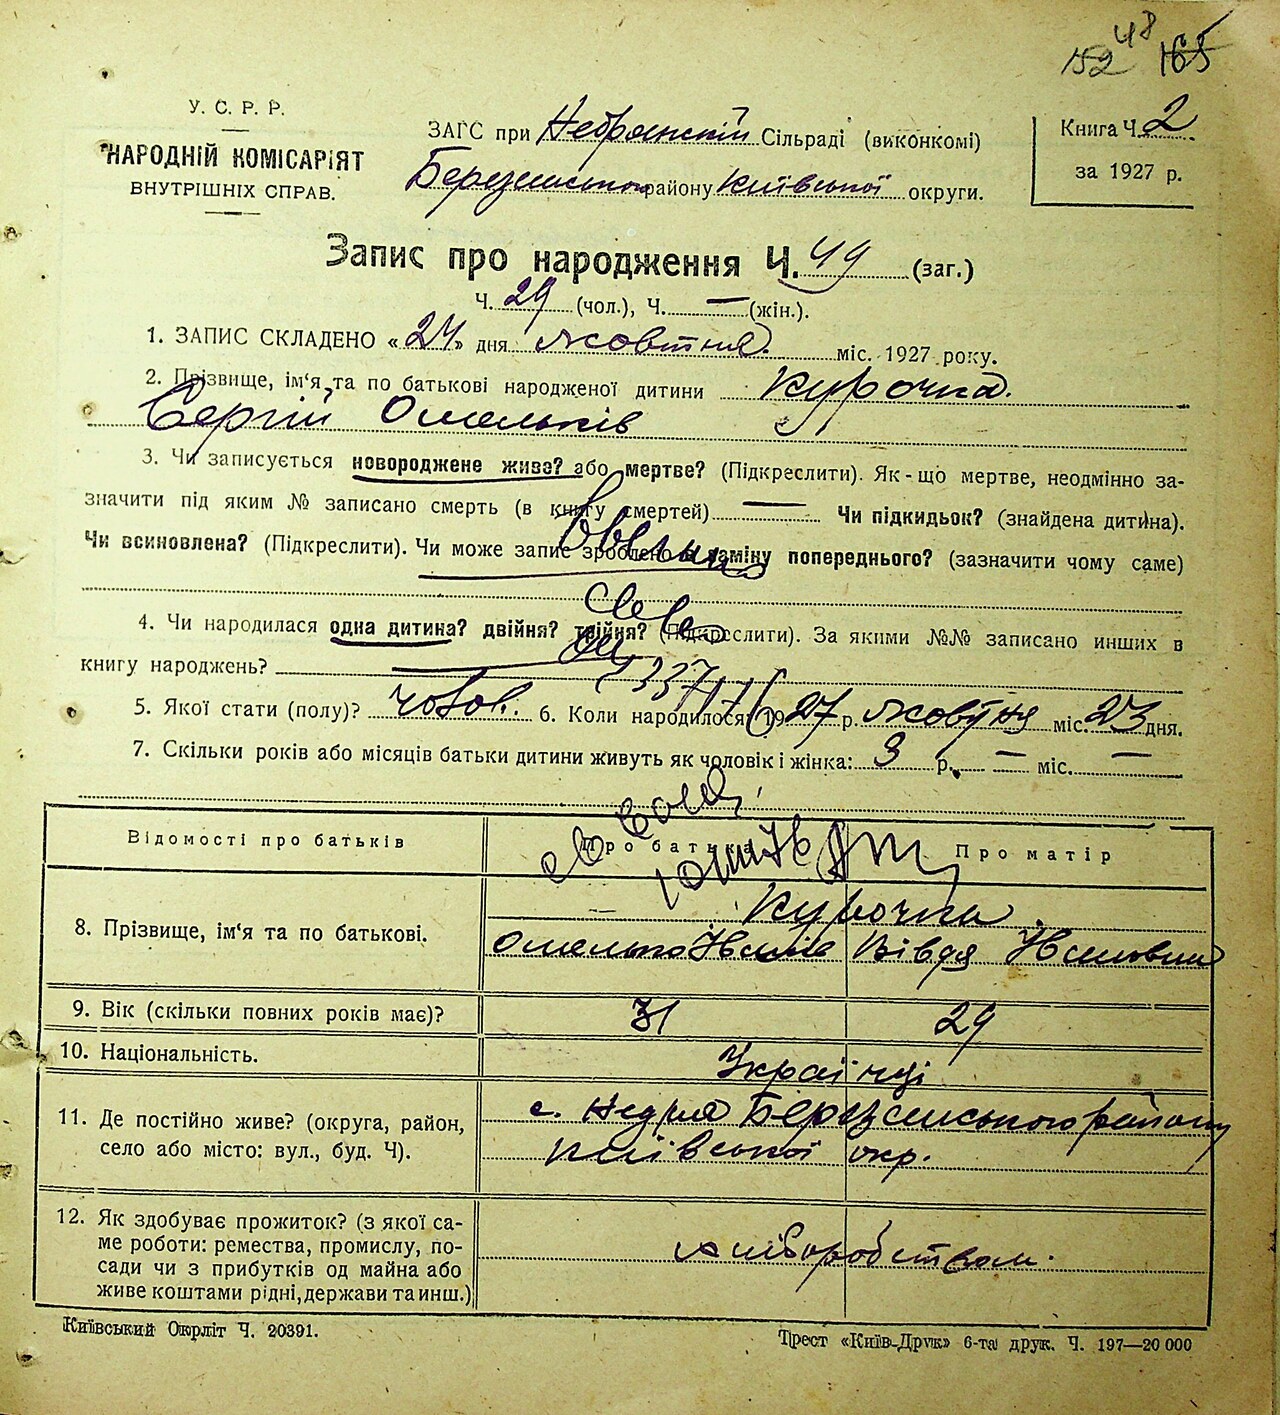 48
152 165
У. С. Р. Р.
НАРОДНІЙ КОМІСАРІЯТ
ВНУТРІШНІХ СПРАВ.
ЗАГС при Недрянскій Сільраді (виконкомі)
Березанського району Київської округи.
Книга Ч. 2
за 1927 р.
Запис про народження Ч. 49 (заг.)
Ч. 29 (чол.), Ч. — (жін.).
1. ЗАПИС СКЛАДЕНО «24» дня жовтня міс. 1927 року.
2. Прізвище, ім'я та по батькові народженої дитини Курочка
Сергій Омельків
3. Чи записується новороджене живе? або мертве? (Підкреслити). Як-що мертве, неодмінно за-
значити під яким № записано смерть (в книгу смертей) — Чи підкидьок? (знайдена дитина).
Чи всиновлена? (Підкреслити). Чи може запис зроблено в заміну попереднього? (зазначити чому саме)
4. Чи народилася одна дитина? двійня? трійня? (Підкреслити). За якими №№ записано инших в
книгу народжень?
5. Якої стати (полу)? чолов. 6. Коли народилося? 1927 р. жовтня міс. 23 дня.
7. Скільки років або місяців батьки дитини живуть як чоловік і жінка: 9 р. — міс. —
Відомості про батьків Про батька Про матір
8. Прізвище, ім'я та по батькові.
Курочка
Омелько Івана Вівдя
9. Вік (скільки повних років має)? 31 29
10. Національність. Українці
11. Де постійно живе? (округа, район,
село або місто: вул., буд. Ч).
с. Недря Березанського району
Київської окр.
12. Як здобуває прожиток? (з якої са-
ме роботи: ремества, промислу, по-
сади чи з прибутків од майна або
живе коштами рідні, держави та инш.)
хліборобством.
Київський Окрліт Ч. 20391.
Трест «Київ-Друк» 6-та друк. Ч. 197—20 000